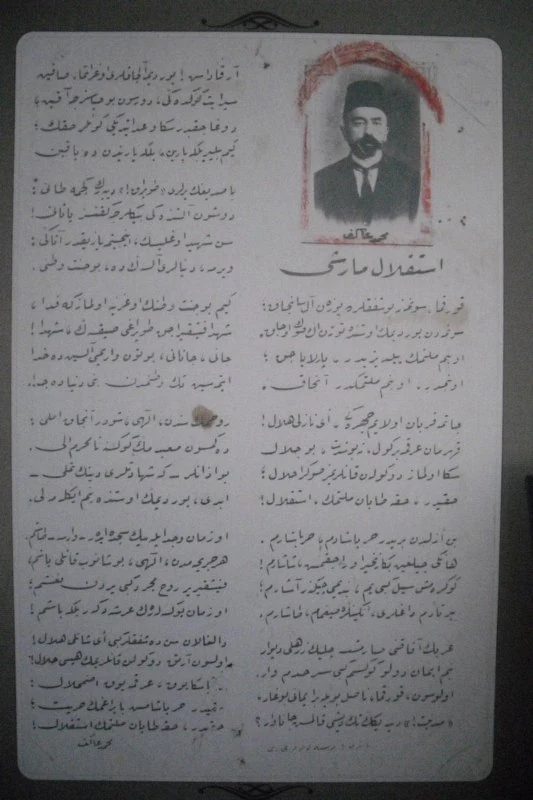 محمد عاكف
استقلال مارشی
قورقما، سونمز بو شفقلرده يوزن آل سانجاق؛
سونمه‌دن يورديمك اوستنده توتن اك صوك اوجاق.
او بنم ملتمك ييلديزيدر، پارلاياجق؛
او بنمدر، او بنم ملتمكدر آنجاق.
چاتمه قربان اولايم چهره‌كی ای نازلی هلال!
قهرمان عرقمه بر كول، نه بو شدت، بو جلال
سكا اولماز دوكولن قانلريمز صوكرا حلال؛
حقيدر، حقه طاپان ملتمك، استقلال!
بن ازلدن بريدر حر ياشادم، حر ياشارم.
هانكی چيلغين بكا زنجير اوراجقمش، شاشارم!
كوكره‌مش سيل كبی يم، بنديمی چيكنر، آشارم؛
ييرتارم طاغلری، انكينلره صيغمام، طاشارم.
غربك آفاقنی صارمشسه چليك زرهلی ديوار
بنم ايمان دولو كوكسم كبی سرحدم وار.
اولوسون، قورقما، ناصل بويله بر ايمانی بوغار،
«مدنيت!» ديديكك تك ديشی قالمش جاناوار؟
آرقاداش! يورديمه آلچاقلری اوغراتما، صاقين
سپر ايت كوكده‌كی، دورسون بو حياسزجه آقين؛
دوغاجقدر سكا وعد ايتديكی كونلر حقك؛
كيم بيلير بلكه يارين، بلكه ياريندن ده ياقين
باصديغك يرلری «طوپراق!» ديه‌رك كچمه طانی:
دوشون آلتنده‌كی بيكلرجه كفنسز ياتانی!
سن شهيد اوغليسك، اينجيتمه يازيقدر آتاكی؛
ويرمه، دنيالری آلسه‌ك ده، بو جنت وطنی.
كيم بو جنت وطنك اوغرينه اولماز كه فدا،
شهدا فيشقيراجق طوپراغی صيقسه‌ك، شهدا!
جانی، جانانی، بوتون واريمی آلسين ده خدا
ايتمه‌سين تك وطنمدن بنی دنياده جدا.
روحمك سندن، الهی، شودر آنجاق املی:
ده‌كمه‌سون معبدمك كوكسنه نامحرم الی
بو اذانلر - كه شهادتلری دينك تملی -
ابدی، يورديمك اوستنده بنم ايكله‌ملی.
او زمان وجد ايله بيك سجده ايدر - وارسه - طاشم،
هر جريحه‌مدن، الهی، بوشانوب قانلی ياشم،
فيشقيرير روح مجرد كبی يردن نعشم؛
او زمان يوكسه‌له‌رك عرشه دكر بلكه باشم!
دالغالان سن ده شفقلر كبی ای شانلی هلال!
اولسون آرتق دوكولن قانلريمك هپسی حلال
ابديا سكا يوق، عرقمه يوق اضمحلال:
حقيدر، حر ياشامش بايراغمك حريت؛
حقيدر، حقه طاپان ملتمك استقلال!
محمد عاكف